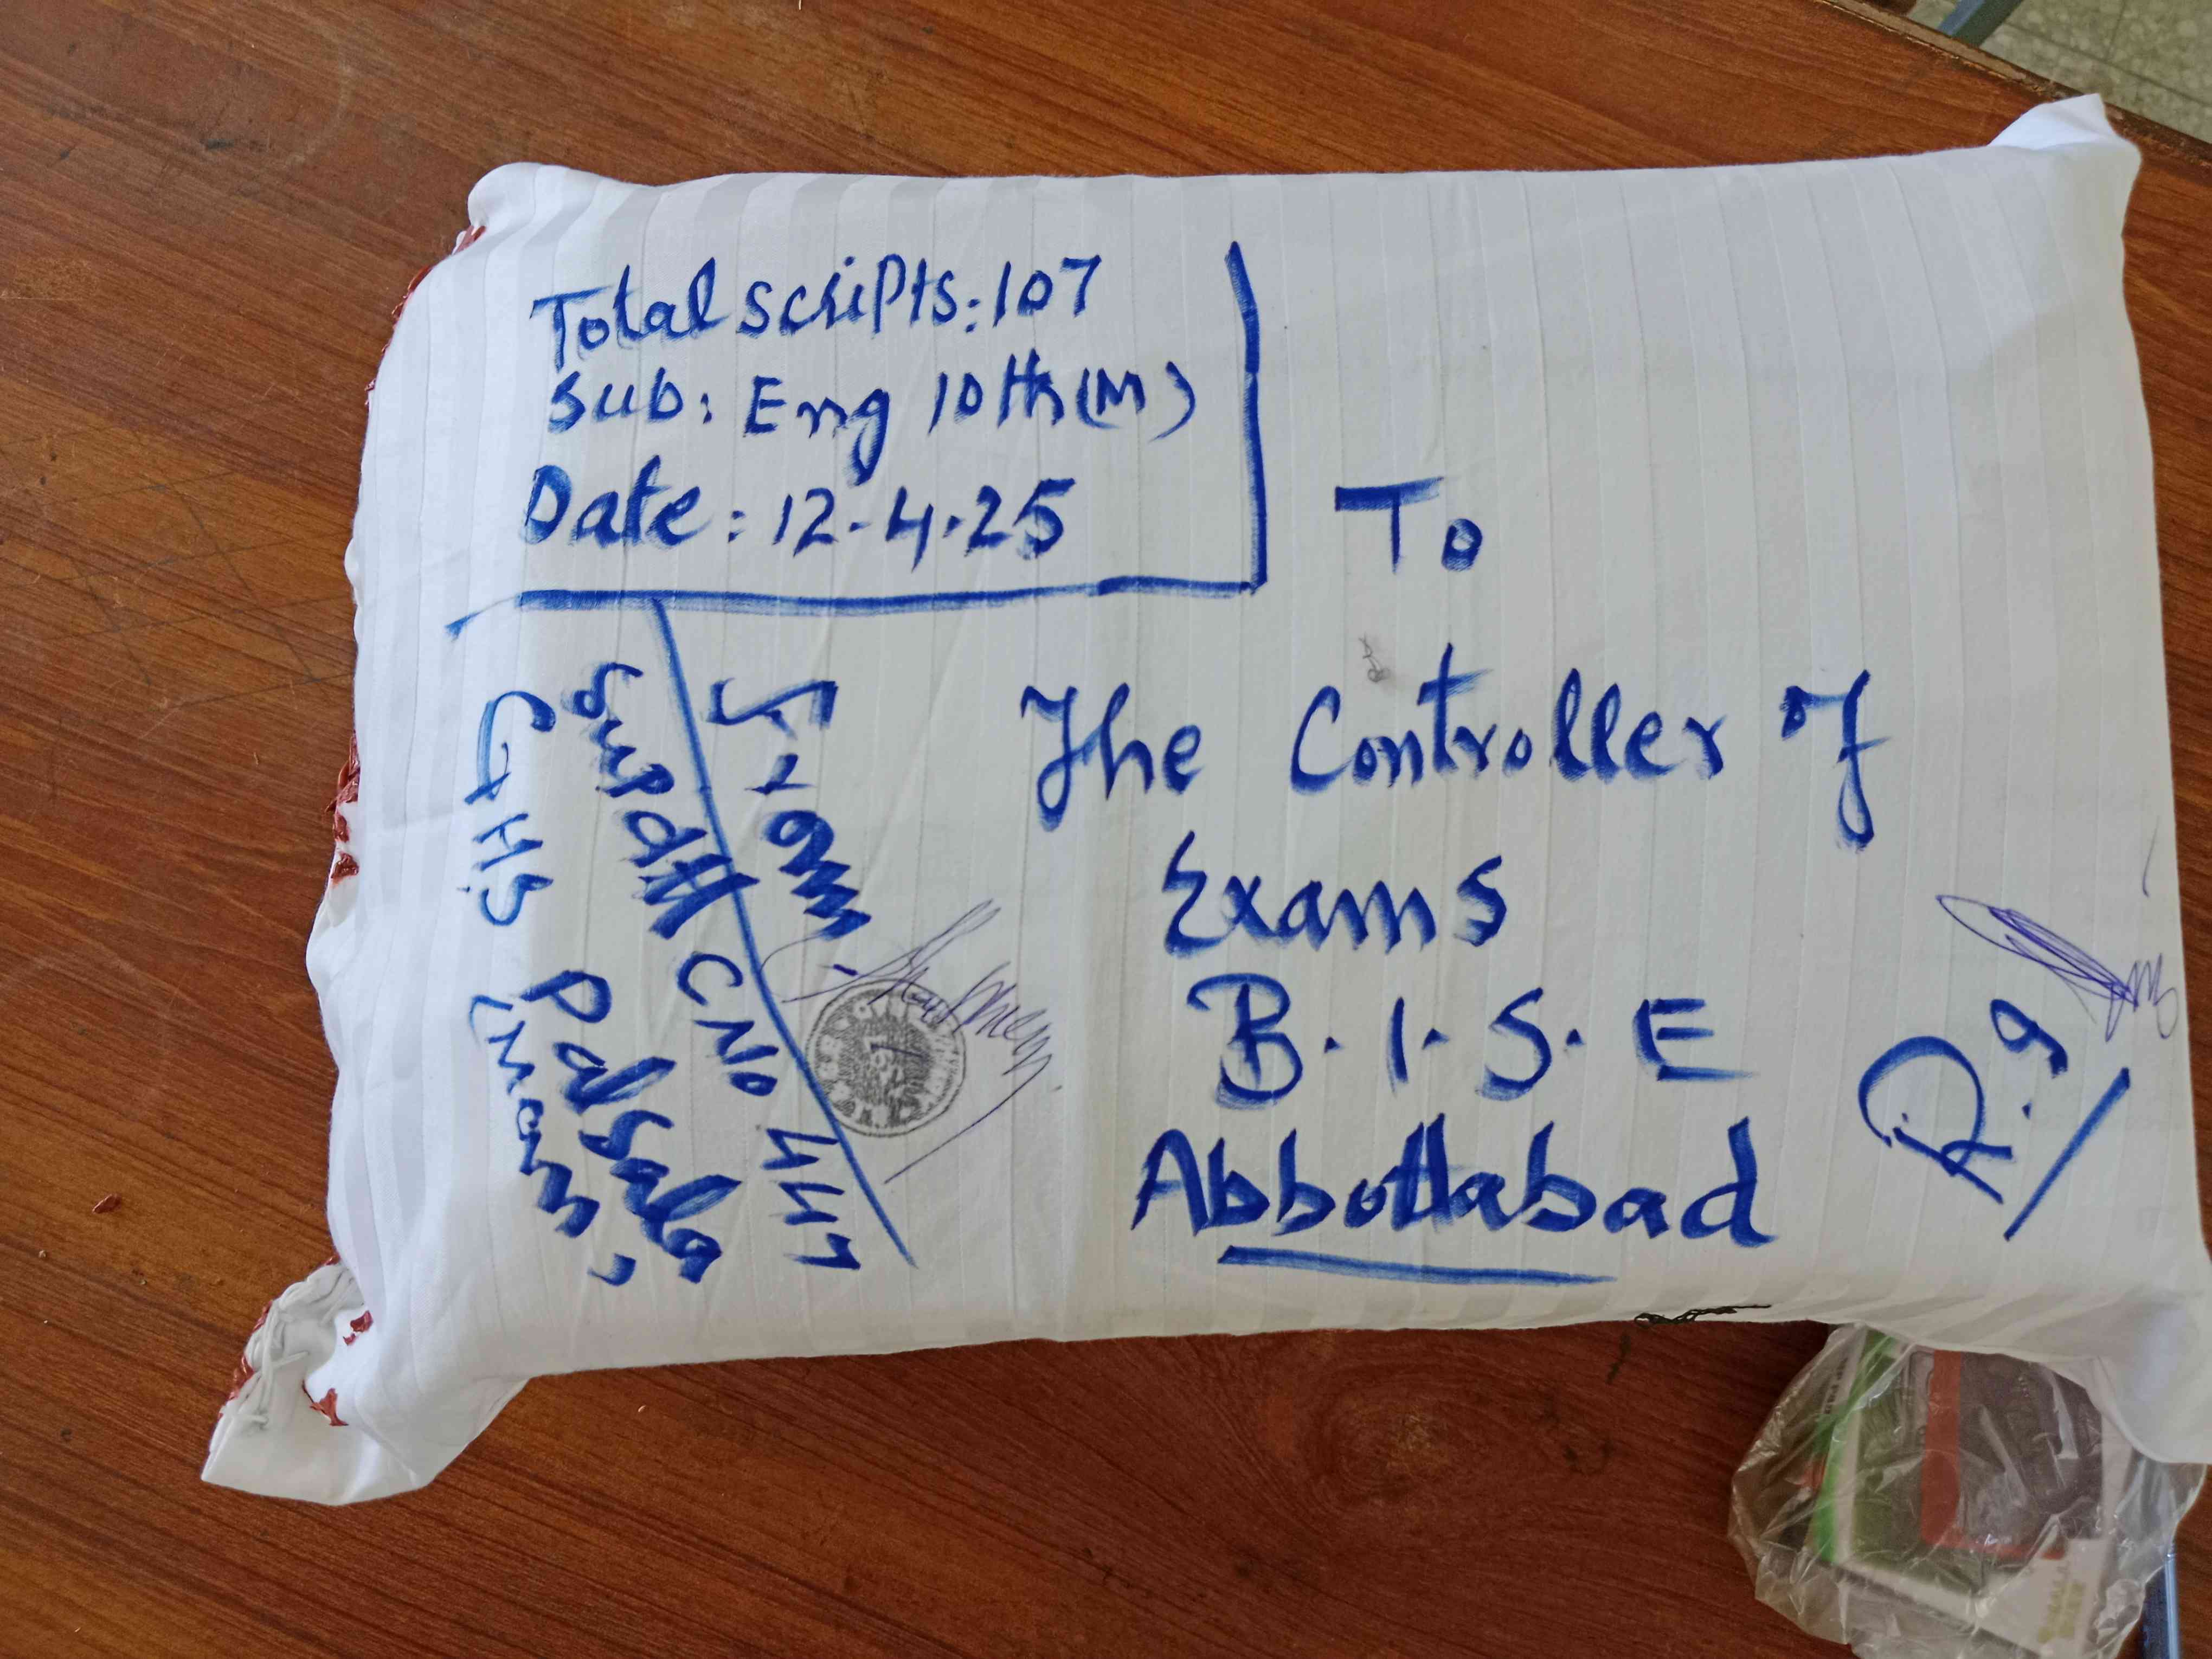 Total scripts: 107
Sub: Eng 10th (M)
Date: 12.4.25
To
The Controller of
Exams
B.I.S.E
Abbottabad
From
Supdtt CNO 447
GHS
R.9